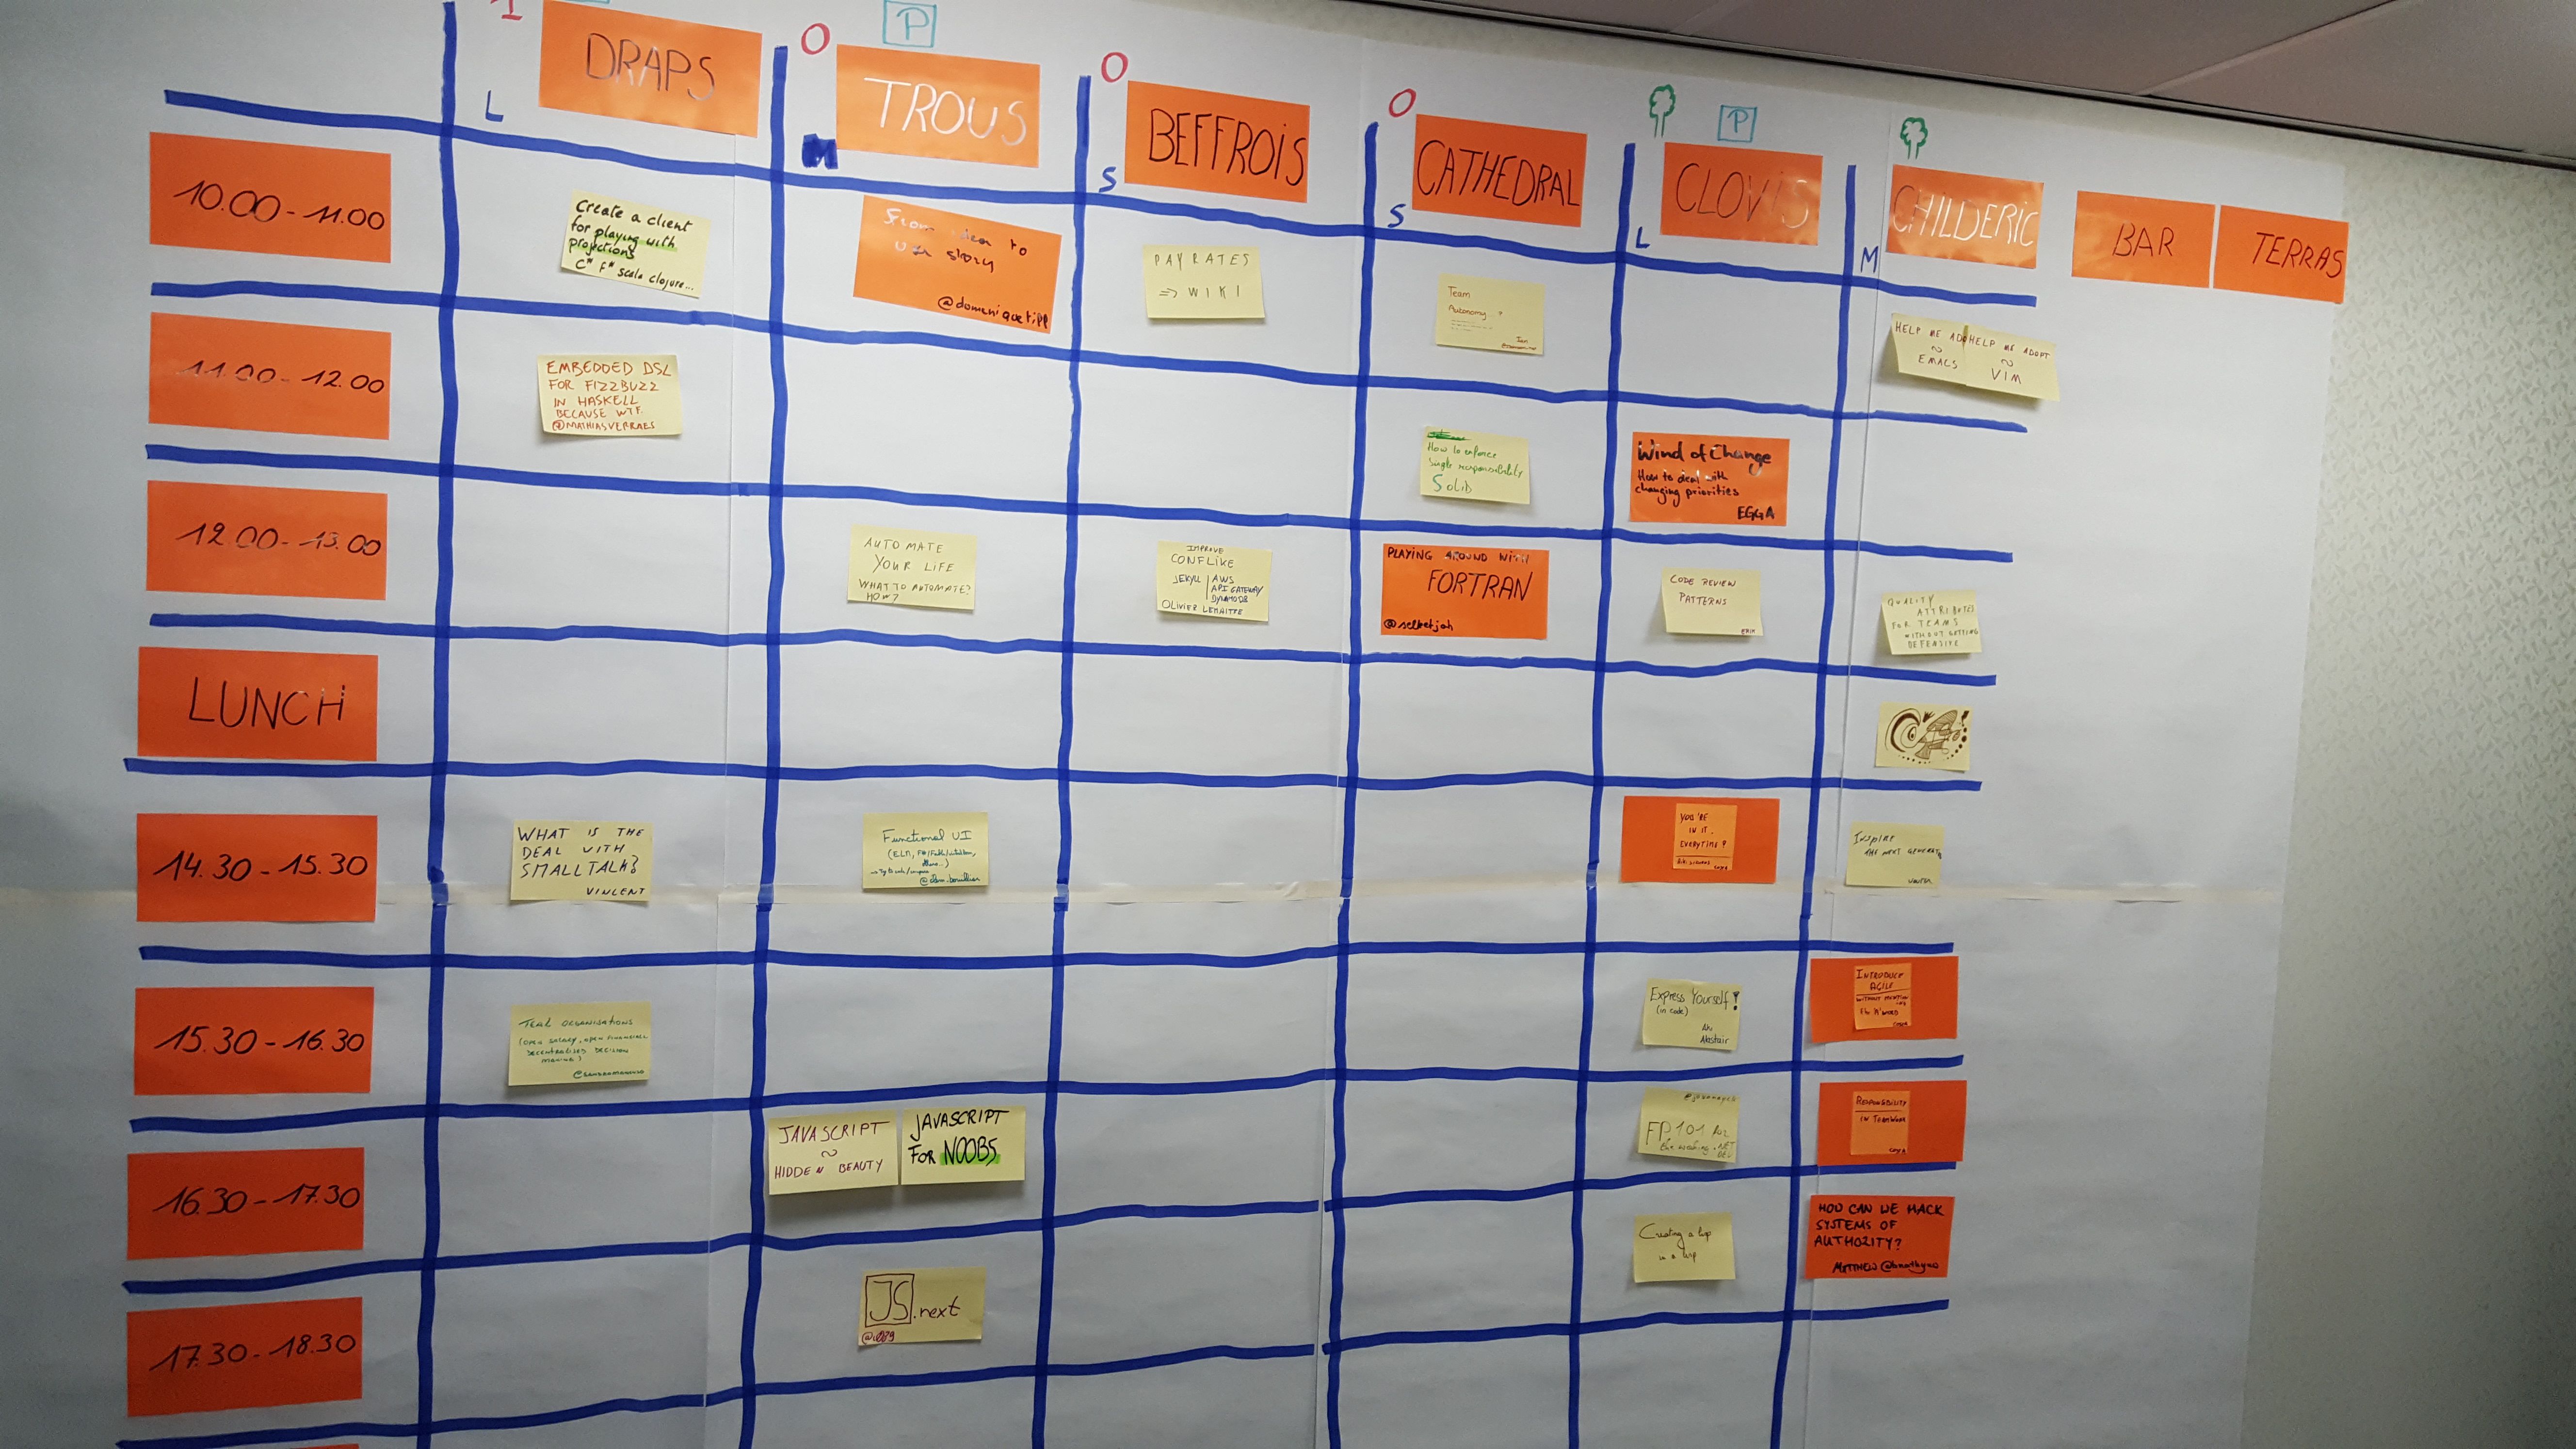 1
DRAPS
L
O
P
TROUS
M
O
BEFFROIS
S
O
CATHEDRAL
S
P
CLOVIS
L
CHILDERIC
M
BAR
TERRAS
10.00-11.00
Create a client
for playing with
projections
C# F# scala clojure...
From idea to
user story
@dominiquetipp
PAYRATES
=> WIKI
Team
Autonomy?
Jan
HELP ME ADO
EMACS
HELP ME ADOPT
VIM
11.00-12.00
EMBEDDED DSL
FOR FIZZBUZZ
IN HASKELL
BECAUSE WTF.
@MATHIASVERRAES
How to enforce
single responsibility
SOLID
Wind of Change
How to deal with
changing priorities
EGGA
12.00-13.00
AUTOMATE
YOUR LIFE
WHAT TO AUTOMATE?
HOW?
IMPROVE
CONFLIKE
JEKYLL | AWS
API GATEWAY
DYNAMODB
OLIVIER LEMAITRE
PLAYING AROUND WITH
FORTRAN
@selketjah
CODE REVIEW
PATTERNS
ERIK
QUALITY
ATTRIBUTES
FOR TEAMS
WITHOUT GETTING
DEFENSIVE
LUNCH
14.30-15.30
WHAT IS THE
DEAL WITH
SMALLTALK?
VINCENT
Functional UI
YOU'RE
IN IT.
EVERYTIME?
INSPIRE
THE NEXT GENERAT
15.30-16.30
TEAL ORGANISATIONS
(OPEN SALARY, OPEN FINANCIALS
DECENTRALISED DECISION
MAKING)
@SANDROMANCUSO
Express Yourself!
(in code)
Aki
Alastair
INTRODUCE
AGILE
WITHOUT MENTION
-ING
the A'WORD
16.30-17.30
JAVASCRIPT
~
HIDDEN BEAUTY
JAVASCRIPT
FOR NOOBS
FP101 for
the working .NET
DEV
RESPONSIBILITY
IN TEAMWORK
17.30-18.30
JS.next
Creating a lisp
in a lisp
HOW CAN WE HACK
SYSTEMS OF
AUTHORITY?
MATTHEW